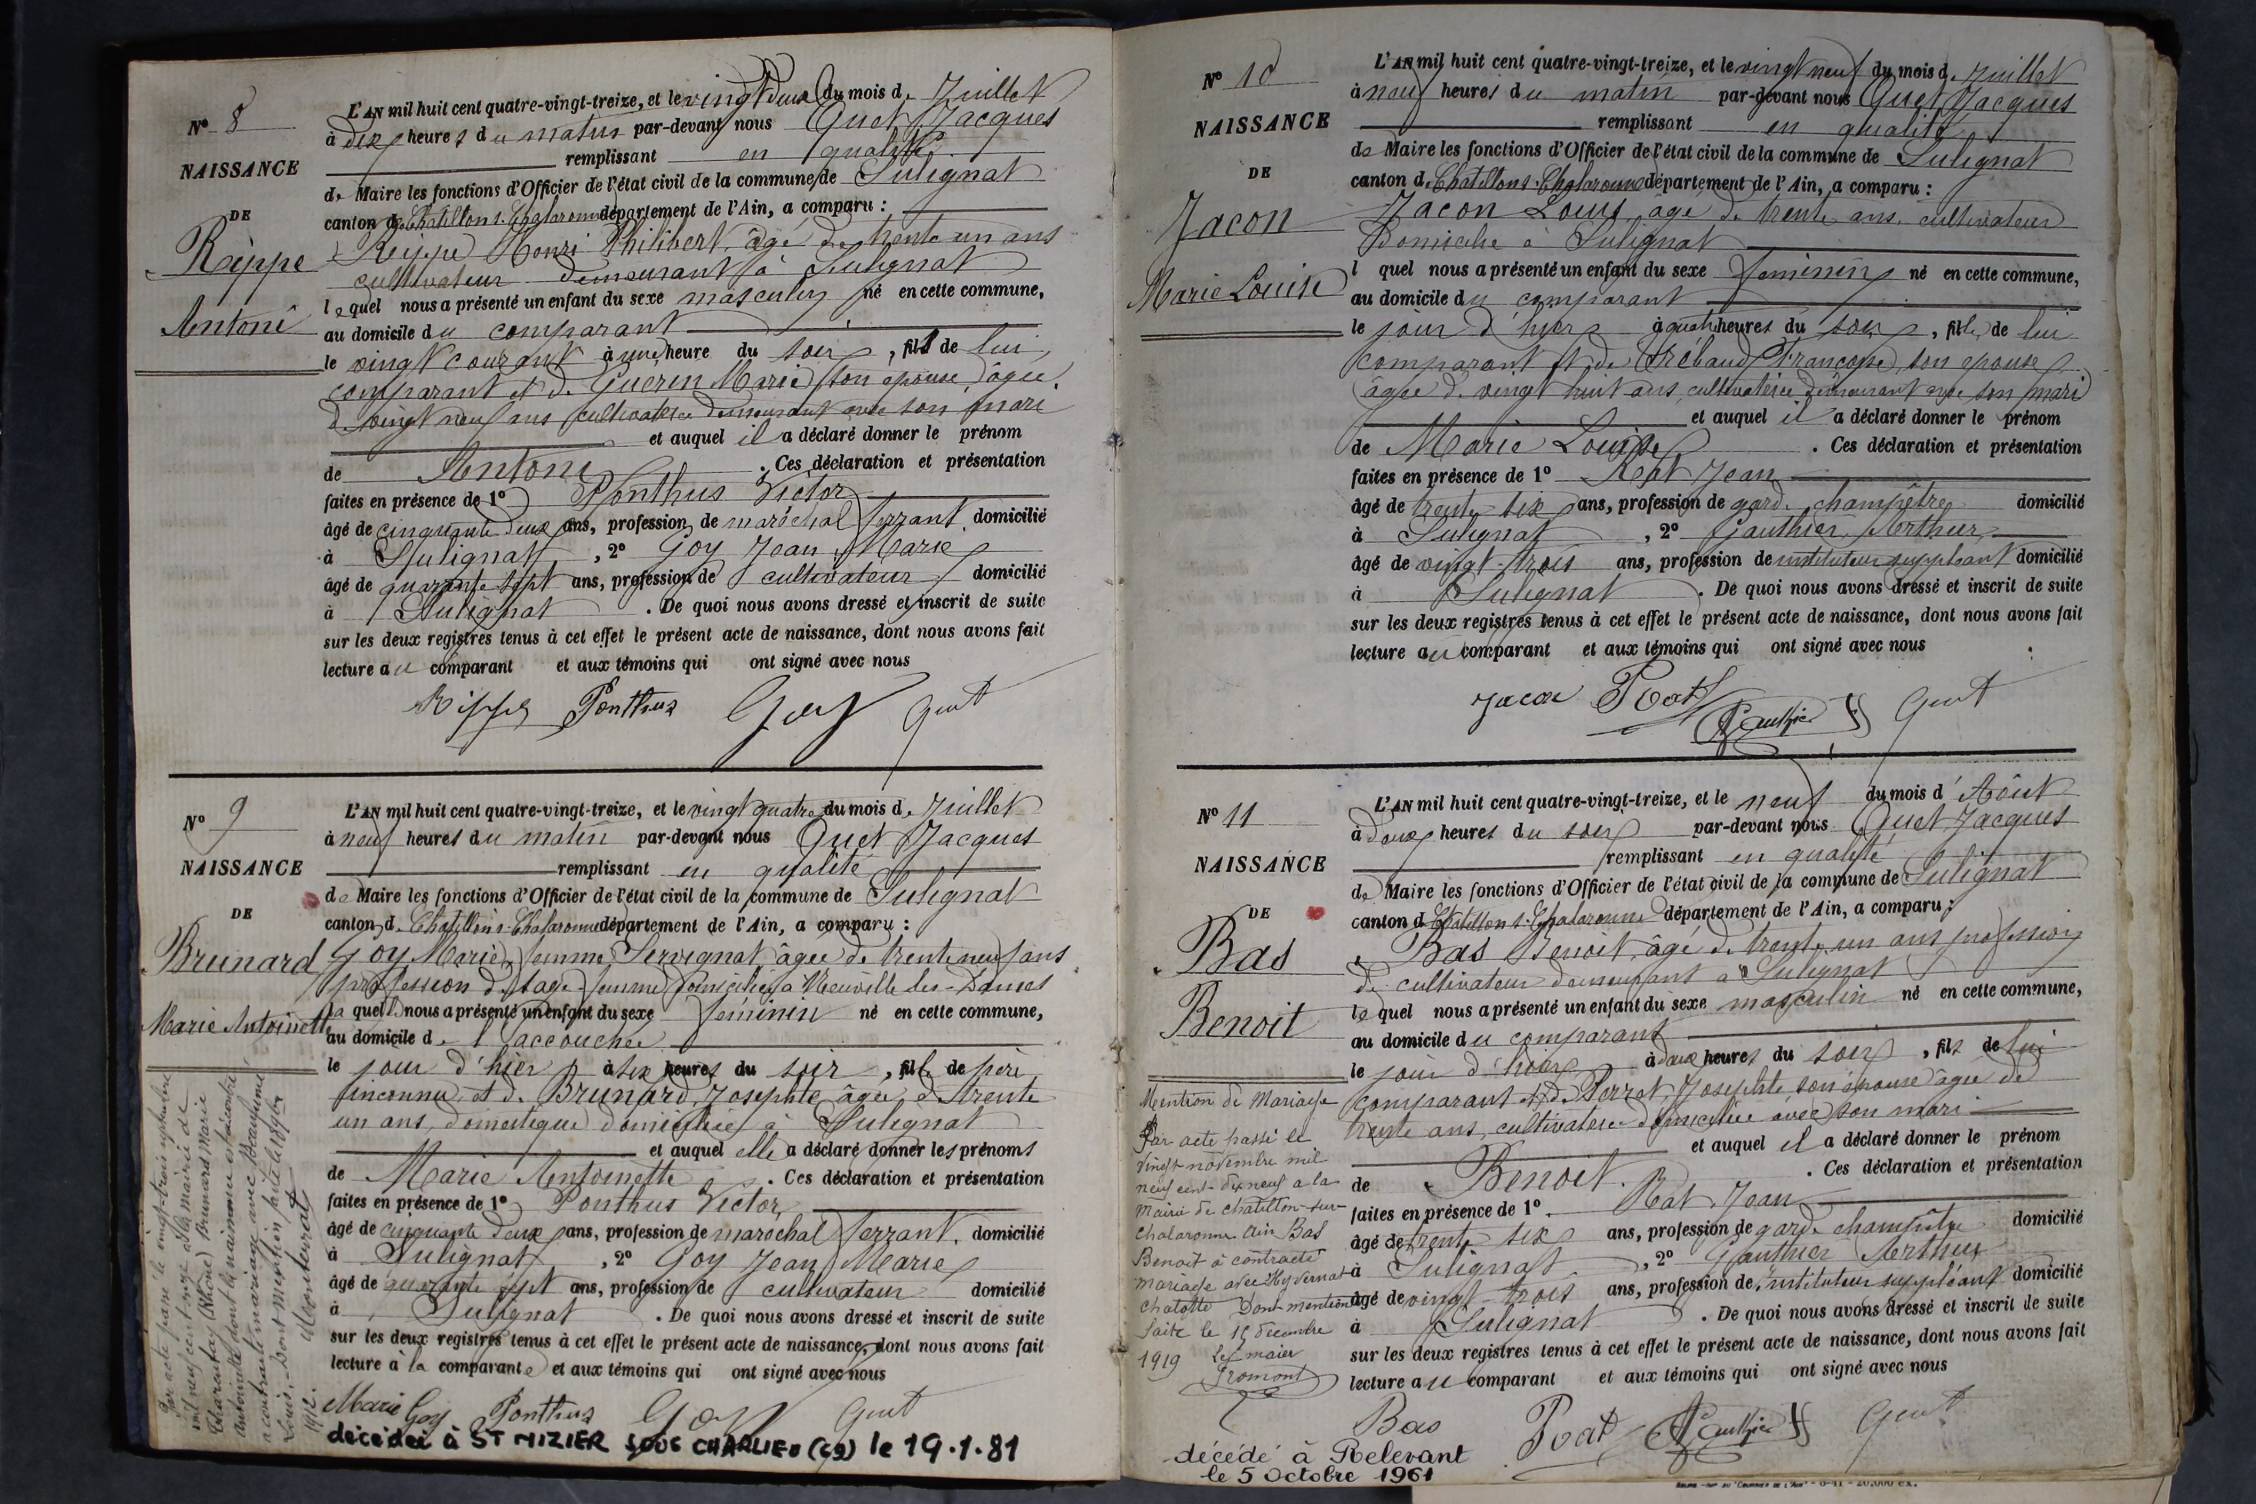 Nº 8
NAISSANCE
DE
Rippe
Antoni
L'AN mil huit cent quatre-vingt-treize, et le vingt deux du mois de Juillet
à dix heures du matin par-devant nous Quet Jacques
remplissant en qualité
de Maire les fonctions d'Officier de l'état civil de la commune de Sulignat
canton de Chatillon s. Chalaronne département de l'Ain, a comparu :
Rippe Henri Philibert, âgé de trente un ans
cultivateur demeurant à Sulignat
lequel nous a présenté un enfant du sexe masculin né en cette commune,
au domicile du comparant
le vingt courant à une heure du soir, fils de lui
comparant et de Guérin Marie son épouse, âgée
de vingt neuf ans cultivatrice demeurant avec son mari
et auquel il a déclaré donner le prénom
de Antoni . Ces déclaration et présentation
faites en présence de 1º Ponthus Victor
âgé de cinquante deux ans, profession de maréchal ferrant, domicilié
à Sulignat , 2º Goy Jean Marie
âgé de quarante sept ans, profession de cultivateur domicilié
à Sulignat . De quoi nous avons dressé et inscrit de suite
sur les deux registres tenus à cet effet le présent acte de naissance, dont nous avons fait
lecture au comparant et aux témoins qui ont signé avec nous
Rippe Ponthus Goy Quet
Nº 9
NAISSANCE
DE
Brunard
Marie Antoinette
L'AN mil huit cent quatre-vingt-treize, et le vingt quatre du mois de Juillet
à neuf heures du matin par-devant nous Quet Jacques
remplissant en qualité
de Maire les fonctions d'Officier de l'état civil de la commune de Sulignat
canton de Chatillon s. Chalaronne département de l'Ain, a comparu :
Goy Marie, femme Servignat, âgée de trente neuf ans
profession de sage femme domiciliée à Neuville les Dames
laquelle nous a présenté un enfant du sexe féminin né en cette commune,
au domicile de l'accouchée
le jour d'hier à six heures du soir, fille de père
inconnu et de Brunard Josephte, âgée de trente
un ans, domestique domiciliée à Sulignat
et auquel elle a déclaré donner les prénoms
de Marie Antoinette . Ces déclaration et présentation
faites en présence de 1º Ponthus Victor
âgé de cinquante deux ans, profession de maréchal ferrant, domicilié
à Sulignat , 2º Goy Jean Marie
âgé de quarante sept ans, profession de cultivateur domicilié
à Sulignat . De quoi nous avons dressé et inscrit de suite
sur les deux registres tenus à cet effet le présent acte de naissance, dont nous avons fait
lecture à la comparante et aux témoins qui ont signé avec nous
Marie Goy Ponthus Goy Quet
décédée à ST NIZIER SOUS CHARLIEU (69) le 19.1.81
Par acte passé le vingt-trois
mil neuf cent treize à la mairie de
Charantay (Rhône) Brunard Marie
Antoinette dont la naissance est ci-contre
a contracté mariage avec Beaufumé
Louis. - Dont mention faite le
1912. Monterrat
Nº 10
NAISSANCE
DE
Jacon
Marie Louise
L'AN mil huit cent quatre-vingt-treize, et le vingt neuf du mois de Juillet
à neuf heures du matin par-devant nous Quet Jacques
remplissant en qualité
de Maire les fonctions d'Officier de l'état civil de la commune de Sulignat
canton de Chatillon s. Chalaronne département de l'Ain, a comparu :
Jacon Louis, âgé de trente ans, cultivateur
domicilié à Sulignat
l quel nous a présenté un enfant du sexe féminin né en cette commune,
au domicile du comparant
le jour d'hier à quatre heures du soir, fille de lui
comparant et de Trébaud Françoise, son épouse
âgée de vingt huit ans, cultivatrice demeurant avec son mari
et auquel il a déclaré donner le prénom
de Marie Louise . Ces déclaration et présentation
faites en présence de 1º Rat Jean
âgé de trente six ans, profession de garde champêtre domicilié
à Sulignat , 2º Gauthier Arthur
âgé de vingt-trois ans, profession de instituteur suppléant domicilié
à Sulignat . De quoi nous avons dressé et inscrit de suite
sur les deux registres tenus à cet effet le présent acte de naissance, dont nous avons fait
lecture au comparant et aux témoins qui ont signé avec nous
Jacon Rat Gauthier Quet
Nº 11
NAISSANCE
DE
Bas
Benoit
L'AN mil huit cent quatre-vingt-treize, et le neuf du mois d'Août
à deux heures du soir par-devant nous Quet Jacques
remplissant en qualité
de Maire les fonctions d'Officier de l'état civil de la commune de Sulignat
canton de Chatillon s. Chalaronne département de l'Ain, a comparu :
Bas Benoit, âgé de trente un ans profession
de cultivateur demeurant à Sulignat
lequel nous a présenté un enfant du sexe masculin né en cette commune,
au domicile du comparant
le jour d'hier à deux heures du soir, fils de lui
comparant et de Perret Josephte son épouse âgée de
trente ans, cultivatrice domiciliée avec son mari
et auquel il a déclaré donner le prénom
de Benoit . Ces déclaration et présentation
faites en présence de 1º. Rat Jean
âgé de trente six ans, profession de garde champêtre domicilié
à Sulignat , 2º Gauthier Arthur
âgé de vingt-trois ans, profession de instituteur suppléant domicilié
à Sulignat . De quoi nous avons dressé et inscrit de suite
sur les deux registres tenus à cet effet le présent acte de naissance, dont nous avons fait
lecture au comparant et aux témoins qui ont signé avec nous
Bas Rat Gauthier Quet
Mention de Mariage
Par acte passé le
vingt novembre mil
neuf cent-dix neuf a la
mairie de chatillon-sur-
chalaronne Ain Bas
Benoit à contracté
mariage avec Hyvernat
chalotte Dont mention
faite le 15 décembre
1919 Le maier
Promont
décédé à Relevant
le 5 Octobre 1961